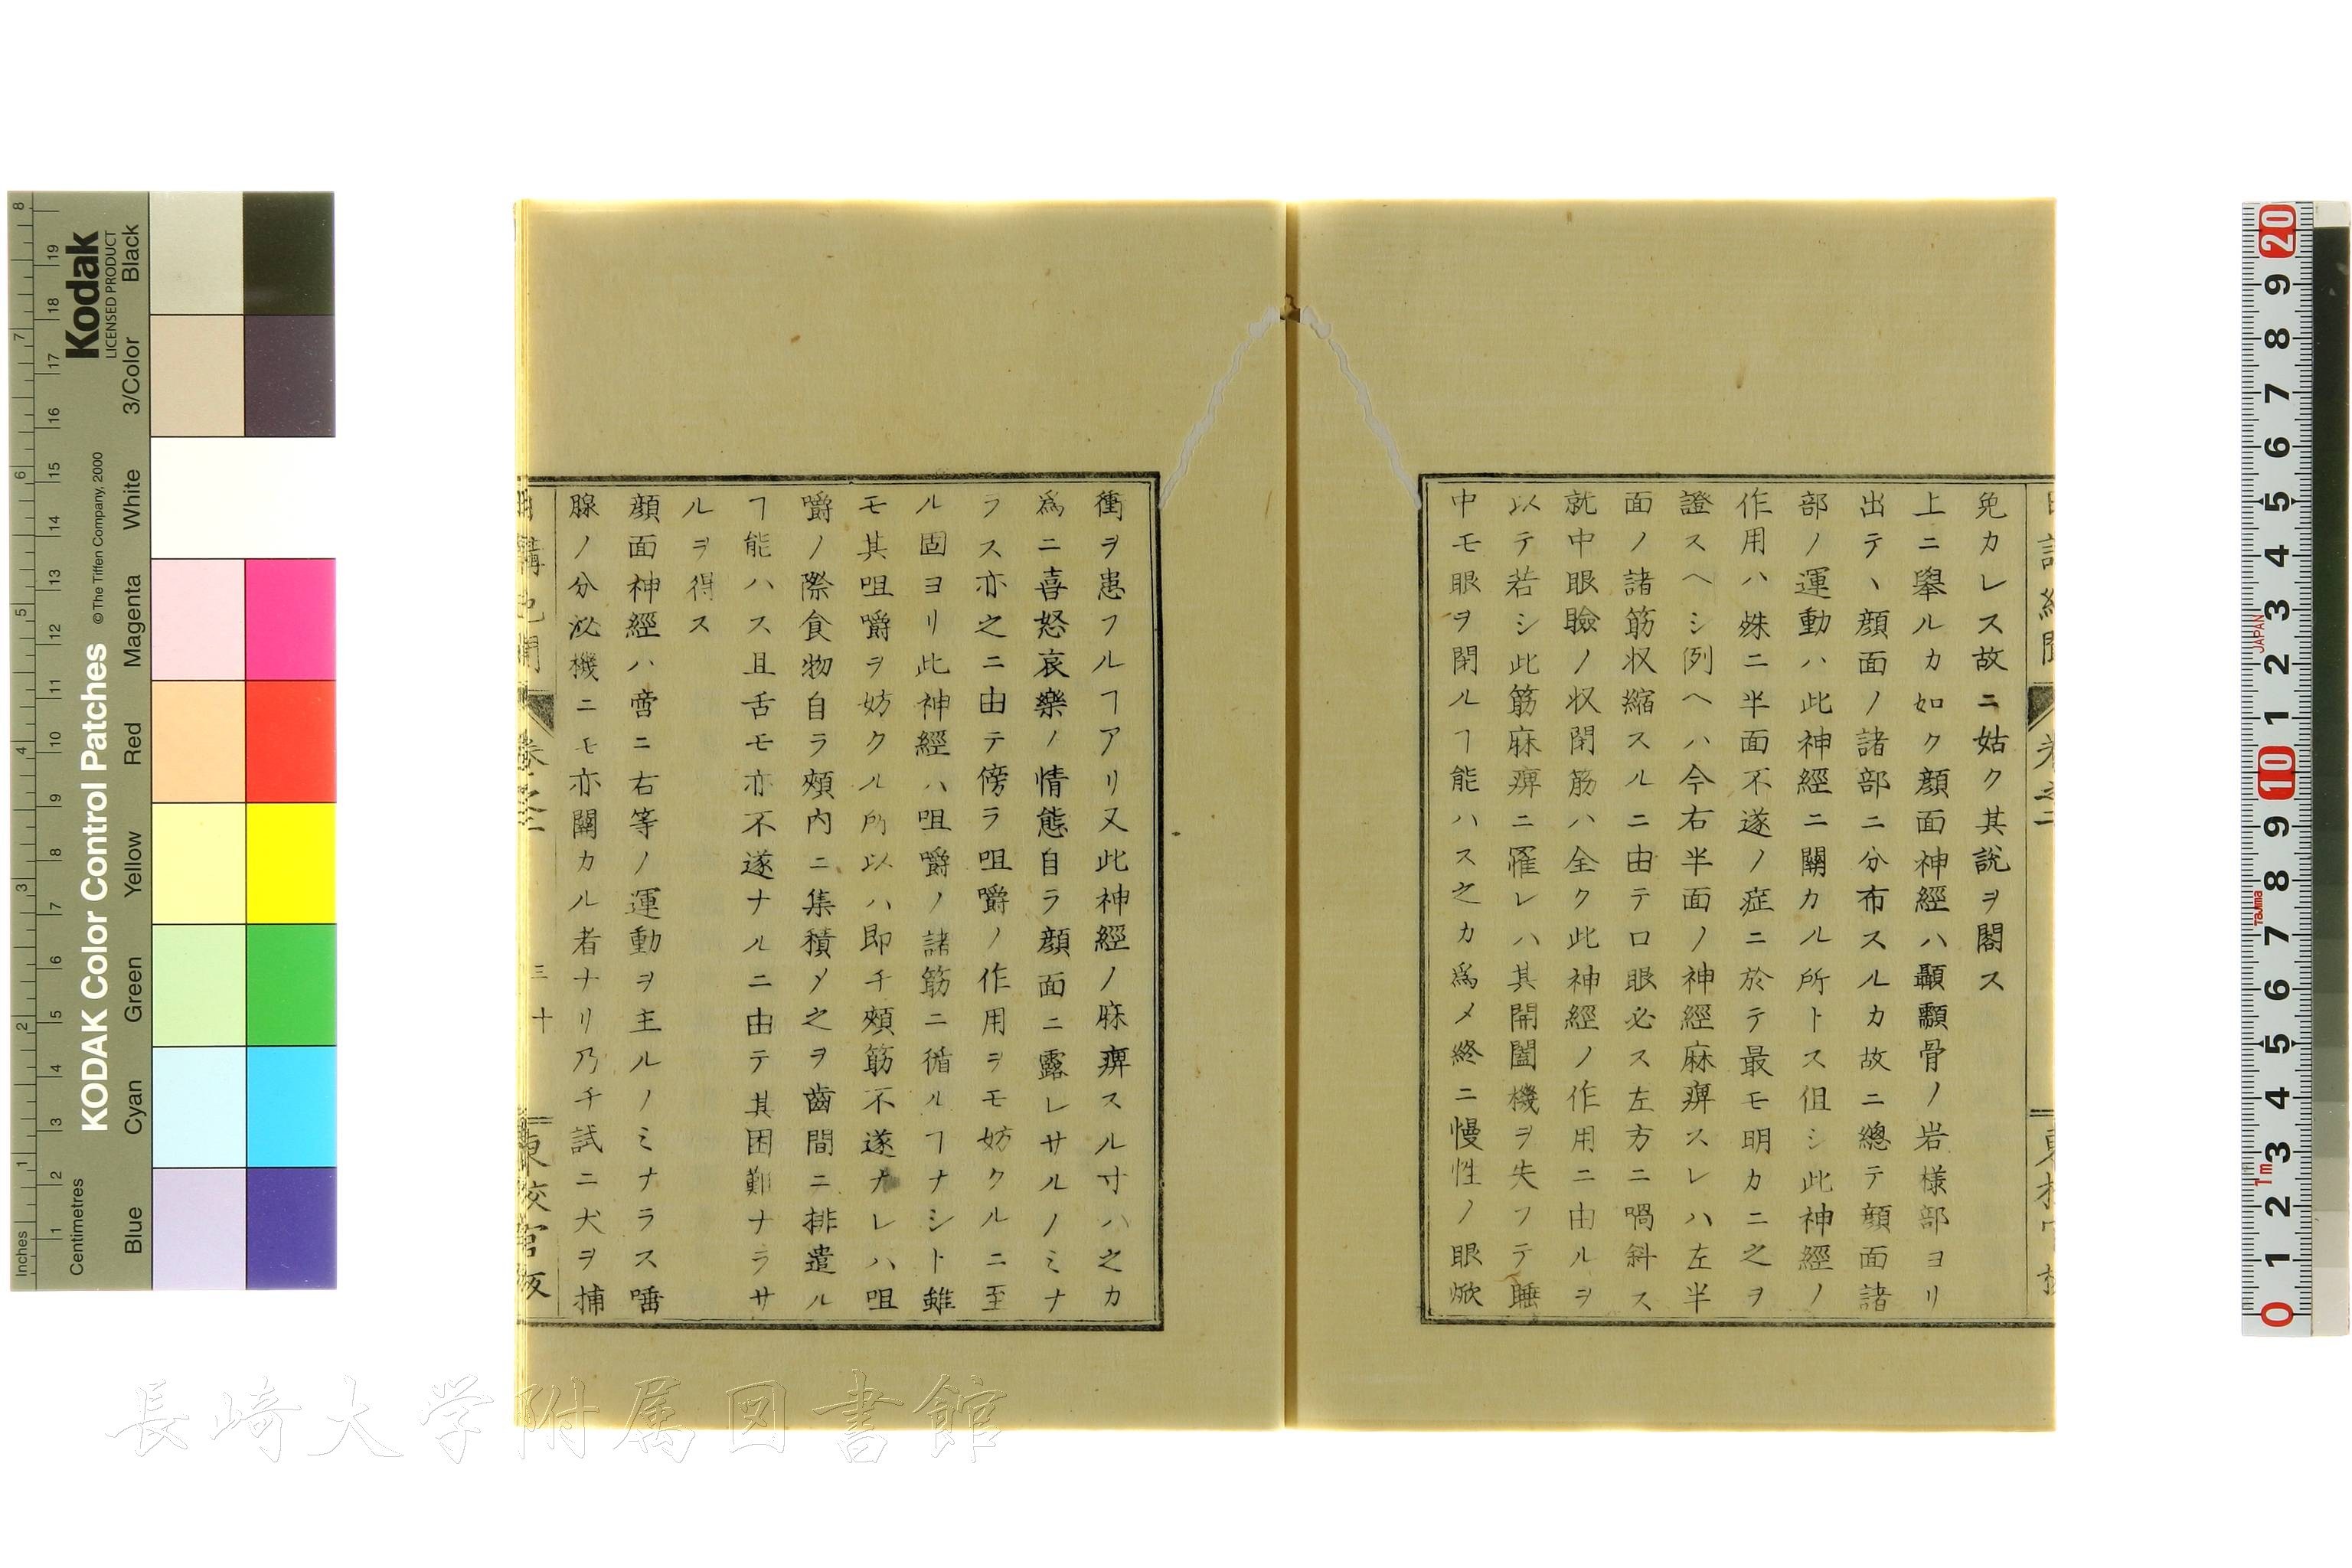 免カレス故ニ姑ク其說ヲ閣ス
上ニ擧ルカ如ク顔面神經ハ顳顬骨ノ岩様部ヨリ
出テヽ顔面ノ諸部ニ分布スルカ故ニ總テ顔面諸
部ノ運動ハ此神經ニ關カル所トス但シ此神經ノ
作用ハ殊ニ半面不遂ノ症ニ於テ最モ明カニ之ヲ
證スヘシ例ヘハ今右半面ノ神經麻痹スレハ左半
面ノ諸筋収縮スルニ由テ口眼必ス左方ニ喎斜ス
就中眼瞼ノ収閉筋ハ全ク此神經ノ作用ニ由ルヲ
以テ若シ此筋麻痹ニ罹レハ其開闔機ヲ失フテ睡
中モ眼ヲ閉ルヿ能ハス之カ爲メ終ニ慢性ノ眼焮
衝ヲ患フルヿアリ又此神經ノ麻痹スル寸ハ之カ
爲ニ喜怒哀樂ノ情態自ラ顔面ニ露レサルノミナ
ラス亦之ニ由テ傍ラ咀嚼ノ作用ヲモ妨クルニ至
ル固ヨリ此神經ハ咀嚼ノ諸筋ニ循ルヿナシト雖
モ其咀嚼ヲ妨クル所以ハ即チ頰筋不遂ナレハ咀
嚼ノ際食物自ラ頰内ニ集積メ之ヲ齒間ニ排遣ル
ヿ能ハス且舌モ亦不遂ナルニ由テ其困難ナラサ
ルヲ得ス
顔面神經ハ啻ニ右等ノ運動ヲ主ルノミナラス唾
腺ノ分泌機ニモ亦關カル者ナリ乃チ試ニ犬ヲ捕
卷之二
三十
東校官版
長崎大学附属図書館
Kodak
LICENSED PRODUCT
KODAK Color Control Patches
© The Tiffen Company, 2000
Inches
Centimetres
Blue Cyan Green Yellow Red Magenta White 3/Color Black